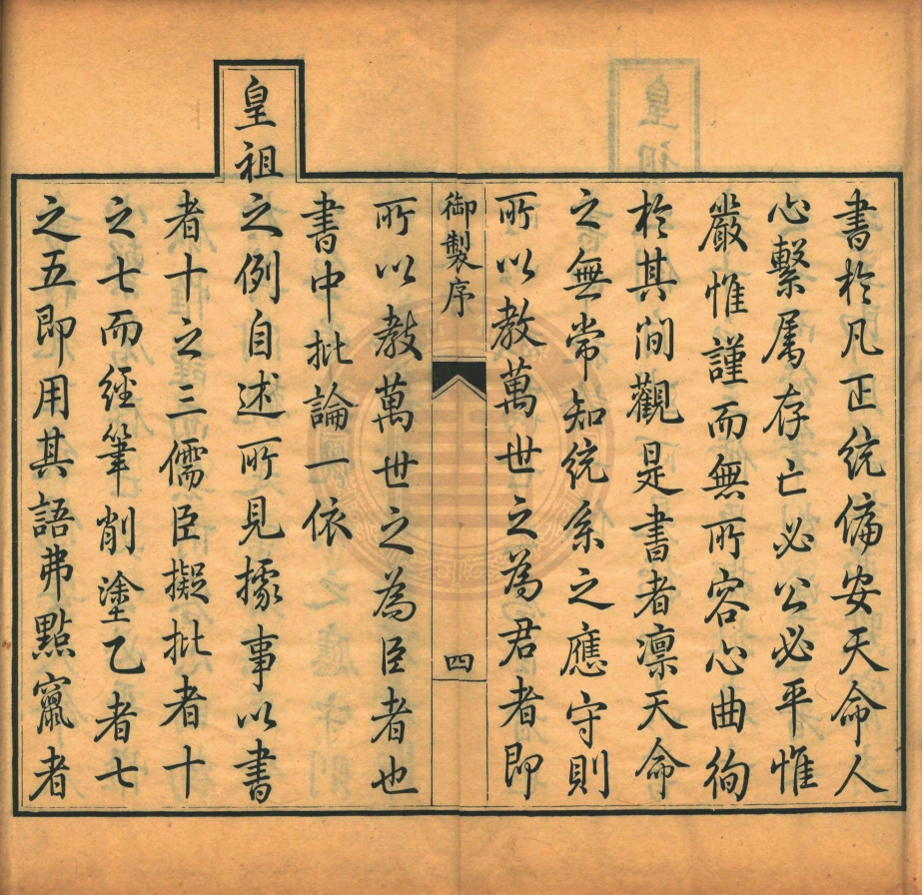 書於凡正統偏安天命人
心繫屬存亡必公必平惟
嚴惟謹而無所容心曲徇
於其間觀是書者凛天命
之無常知統系之應守則
所以教萬世之為君者即
御製序
四
所以教萬世之為臣者也
書中批論一依
皇祖之例自述所見據事以書
者十之三儒臣擬批者十
之七而經筆削塗乙者七
之五即用其語弗點竄者